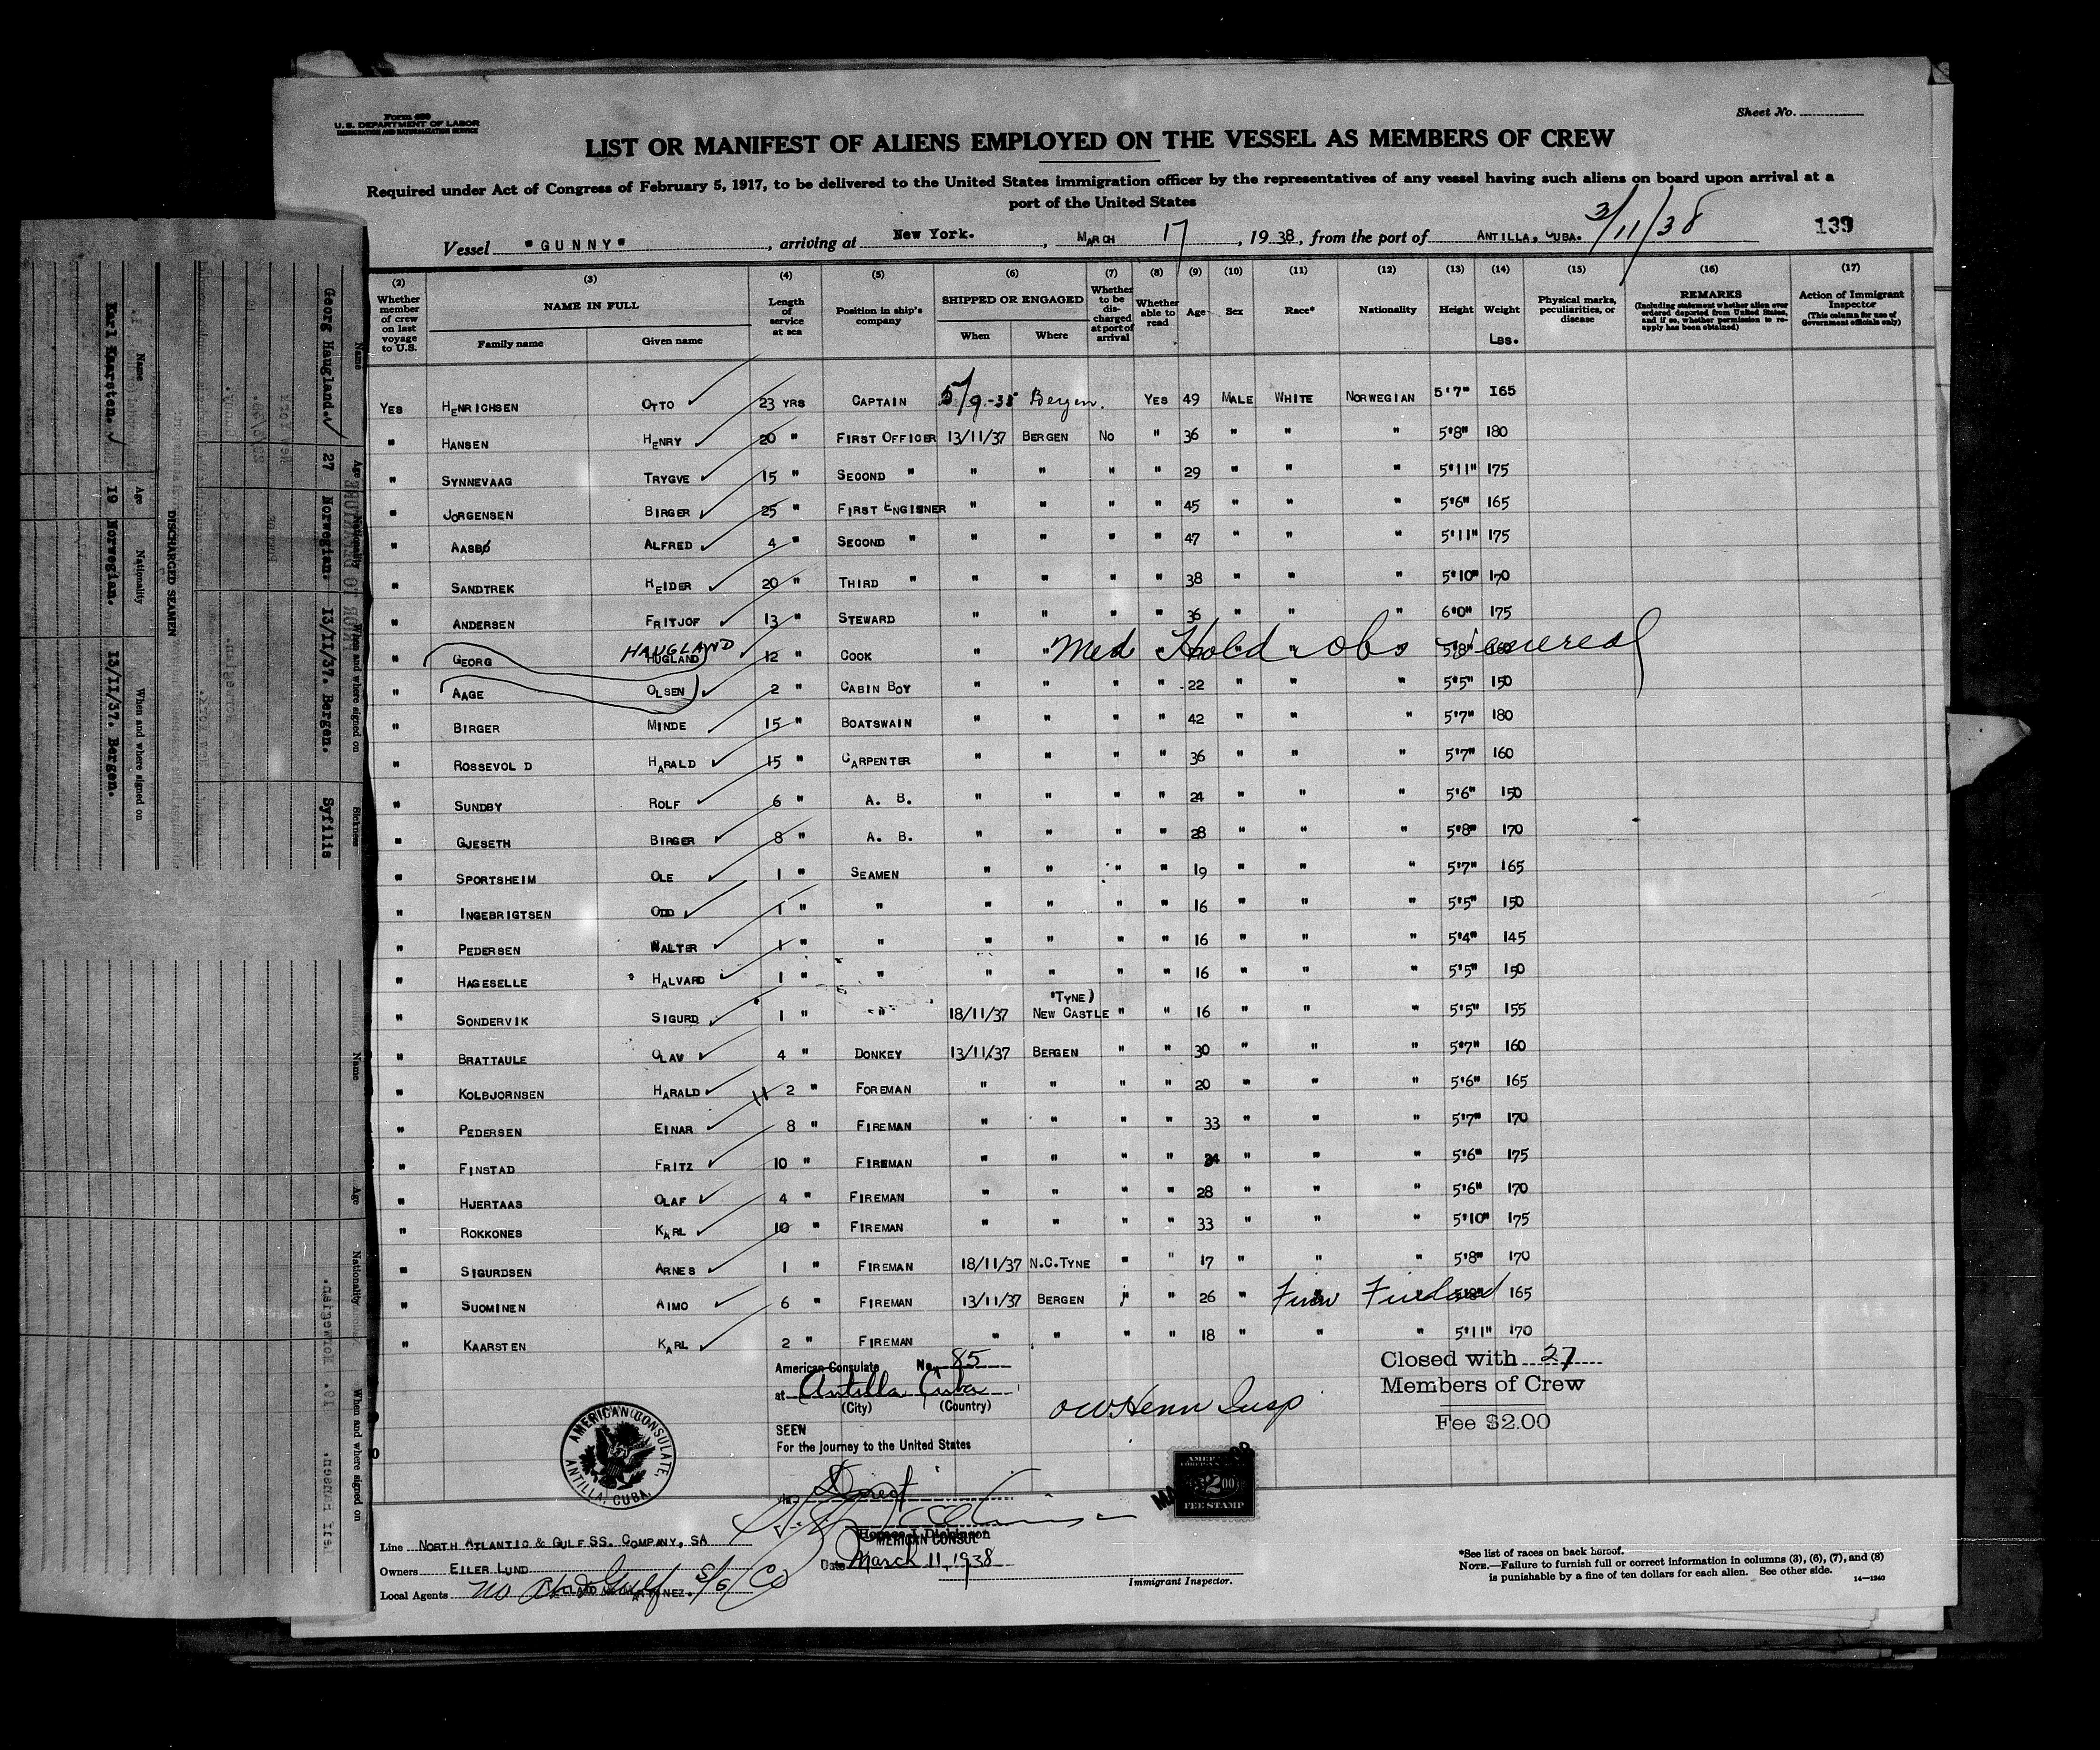 Form 689
U.S. DEPARTMENT OF LABOR
IMMIGRATION AND NATURALIZATION SERVICE
Sheet No.
LIST OR MANIFEST OF ALIENS EMPLOYED ON THE VESSEL AS MEMBERS OF CREW
Required under Act of Congress of February 5, 1917, to be delivered to the United States immigration officer by the representatives of any vessel having such aliens on board upon arrival at a
port of the United States
Vessel "GUNNY", arriving at New York., MARCH 17, 1938, from the port of ANTILLA, CUBA. 3/11/38 139
(2) (3) (4) (5) (6) (7) (8) (9) (10) (11) (12) (13) (14) (15) (16) (17)
Whether member of crew on last voyage to U.S. NAME IN FULL Family name Given name Length of service at sea Position in ship's company SHIPPED OR ENGAGED When Where Whether to be discharged at port of arrival Whether able to read Age Sex Race* Nationality Height Weight LBS. Physical marks, peculiarities, or disease REMARKS (Including statement whether alien ever ordered deported from United States, and if so, whether permission to reapply has been obtained) Action of Immigrant Inspector (This column for use of Government officials only)
YES HENRICHSEN OTTO 23 YRS CAPTAIN 5/9-35 Bergen. YES 49 MALE WHITE NORWEGIAN 5'7" 165
" HANSEN HENRY 20 " FIRST OFFICER 13/11/37 BERGEN NO " 36 " " " 5'8" 180
" SYNNEVAAG TRYGVE 15 " SECOND " " " " " 29 " " " 5'11" 175
" JORGENSEN BIRGER 25 " FIRST ENGIENER " " " " 45 " " " 5'6" 165
" AASBØ ALFRED 4 " SECOND " " " " " 47 " " " 5'11" 175
" SANDTREK REIDER 20 " THIRD " " " " " 38 " " " 5'10" 170
" ANDERSEN FRITJOF 13 " STEWARD " " " " 36 " " " 6'0" 175
" GEORG HUGLAND HAUGLAND 12 " COOK " " Med Hold obs venereal 5'8"
" AAGE OLSEN 2 " CABIN BOY " " " " 22 " " " 5'5" 150
" BIRGER MINDE 15 " BOATSWAIN " " " " 42 " " " 5'7" 180
" ROSSEVOLD HARALD 15 " CARPENTER " " " " 36 " " " 5'7" 160
" SUNDBY ROLF 6 " A. B. " " " " 24 " " " 5'6" 150
" GJESETH BIRGER 8 " A. B. " " " " 28 " " " 5'8" 170
" SPORTSHEIM OLE 1 " SEAMEN " " " " 19 " " " 5'7" 165
" INGEBRIGTSEN ODD 1 " " " " " " 16 " " " 5'5" 150
" PEDERSEN WALTER 1 " " " " " " 16 " " " 5'4" 145
" HAGESELLE HALVARD 1 " " " " " " 16 " " " 5'5" 150
" SONDERVIK SIGURD 1 " " 18/11/37 "TYNE) NEW CASTLE " " 16 " " " 5'5" 155
" BRATTAULE OLAV 4 " DONKEY 13/11/37 BERGEN " " 30 " " " 5'7" 160
" KOLBJORNSEN HARALD 2 " FOREMAN " " " " 20 " " " 5'6" 165
" PEDERSEN EINAR 8 " FIREMAN " " " " 33 " " " 5'7" 170
" FINSTAD FRITZ 10 " FIREMAN " " " " 34 " " " 5'6" 175
" HJERTAAS OLAF 4 " FIREMAN " " " " 28 " " " 5'6" 170
" ROKKONES KARL 10 " FIREMAN " " " " 33 " " " 5'10" 175
" SIGURDSEN ARNES 1 " FIREMAN 18/11/37 N.C.TYNE " " 17 " " " 5'8" 170
" SUOMINEN AIMO 6 " FIREMAN 13/11/37 BERGEN " " 26 " Finn Finland 165
" KAARSTEN KARL 2 " FIREMAN " " " " 18 " " " 5'11" 170
American Consulate No. 85
at Antilla Cuba
(City) (Country)
SEEN
For the journey to the United States
Direct
Horace J. Dickinson
AMERICAN CONSUL
Date March 11, 1938
AMERICAN CONSULATE, ANTILLA, CUBA.
Closed with 27
Members of Crew
Fee $2.00
FEE STAMP
Line NORTH ATLANTIC & GULF SS. COMPANY, SA
Owners EILER LUND
Local Agents
Immigrant Inspector.
*See list of races on back hereof.
NOTE.—Failure to furnish full or correct information in columns (3), (6), (7), and (8)
is punishable by a fine of ten dollars for each alien. See other side.
14—1240
Name Age Nationality When and where signed on Sickness
Georg Haugland. 27 Norwegian. 13/11/37. Bergen. Syfilis
DISCHARGED SEAMEN
Name Age Nationality When and where signed on
Karl Kaarsten. 19 Norwegian. 13/11/37. Bergen.
Name Age Nationality When and where signed on